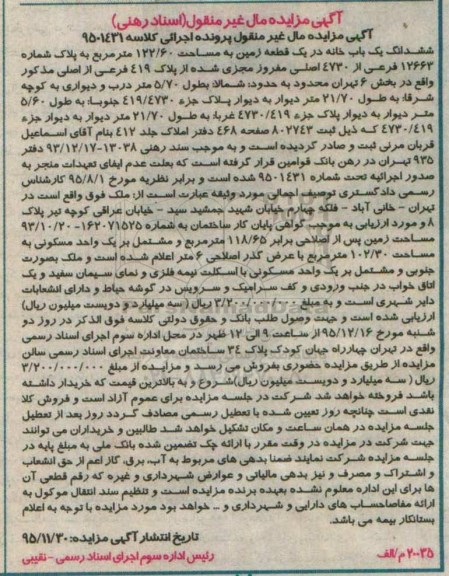 آگهی مزایده مال غیر منقول(اسناد رهنی)
آگهی مزایده مال غیر منقول پرونده اجرائی کلاسه ۹۵۰۱۴۳۱
ششدانگ یک باب خانه در یک قطعه زمین به مساحت ۱۲۲/۶۰ مترمربع به پلاک شماره
۱۲۶۶۳ فرعی از ۴۷۳۰ اصلی مفروز مجزی شده از پلاک ۴۱۹ فرعی از اصلی مذکور
واقع در بخش ۶ تهران محدود به حدود: شمالا: بطول ۵/۷۰ متر درب و دیواری به کوچه
شرقا: به طول ۲۱/۷۰ متر دیوار به دیوار پلاک جزء ۴۱۹/۴۷۳۰ جنوبا: به طول ۵/۶۰
متر دیوار به دیوار پلاک جزء ۴۷۳۰/۴۱۹ غربا: به طول ۲۱/۷۰ متر دیوار به دیوار جزء
۴۷۳۰/۴۱۹ که ذیل ثبت ۸۰۲۷۴۳ صفحه ۴۶۸ دفتر املاک جلد ۴۱۲ بنام آقای اسماعیل
قربان مرنی ثبت و صادر گردیده است و به موجب سند رهنی ۱۳۰۳۸-۹۳/۱۲/۱۷ دفتر
۹۳۵ تهران در رهن بانک قوامین قرار گرفته است که بعلت عدم ایفای تعهدات منجر به
صدور اجرائیه تحت شماره ۹۵۰۱۴۳۱ شده است و برابر نظریه مورخ ۹۵/۸/۱ کارشناس
رسمی دادگستری توصیف اجمالی مورد وثیقه عبارت است از: ملک فوق واقع است در
تهران - خانی آباد - فلکه چهارم خیابان شهید جمشید سید - خیابان عراقی کوچه تیر پلاک
۸ و مورد ارزیابی به موجب گواهی پایان کار ساختمان به شماره ۱۶۲۰۷۱۵۲۵-۹۳/۱۰/۲۰
مساحت زمین پس از اصلاحی برابر ۱۱۸/۶۵ مترمربع و مشتمل بر یک واحد مسکونی به
مساحت ۱۰۲/۳۰ مترمربع با عرض گذر اصلاحی ۶ متر اعلام شده است و ملک بصورت
جنوبی و مشتمل بر یک واحد مسکونی با اسکلت نیمه فلزی و نمای سیمان سفید و یک
اتاق خواب در جنب ورودی و کف سرامیک و سرویس در گوشه حیاط و دارای انشعابات
دایر شهری است و به مبلغ ۳/۲۰۰/۰۰۰/۰۰۰ ریال ( سه میلیارد و دویست میلیون ریال)
ارزیابی شده است و جهت وصول طلب بانک و حقوق دولتی کلاسه فوق الذکر در روز دو
شنبه مورخ ۹۵/۱۲/۱۶ از ساعت ۹ الی ۱۲ ظهر در محل اداره سوم اجرای اسناد رسمی
واقع در تهران چهارراه جهان کودک پلاک ۳۴ ساختمان معاونت اجرای اسناد رسمی سالن
مزایده از طریق مزایده حضوری بفروش می رسد و مزایده از مبلغ ۳/۲۰۰/۰۰۰/۰۰۰
ریال ( سه میلیارد و دویست میلیون ریال)شروع و به بالاترین قیمت که خریدار داشته
باشد فروخته خواهد شد شرکت در جلسه مزایده برای عموم آزاد است و فروش کلا
نقدی است چنانچه روز تعیین شده با تعطیل رسمی مصادف گردد روز بعد از تعطیل
جلسه مزایده در همان ساعت و مکان تشکیل خواهد شد طالبین و خریداران می توانند
جهت شرکت در مزایده در وقت مقرر با ارائه چک تضمین شده بانک ملی به مبلغ پایه در
جلسه مزایده شرکت نمایند ضمنا بدهی های مربوط به آب، برق، گاز اعم از حق انشعاب
و اشتراک و مصرف و نیز بدهی مالیاتی و عوارض شهرداری و غیره که رقم قطعی آن
ها برای این اداره معلوم نشده بعهده برنده مزایده است و تنظیم سند انتقال موکول به
ارائه مفاصاحساب های دارایی و شهرداری و ... خواهد بود مورد مزایده با توجه به اعلام
بستانکار بیمه می باشد.
تاریخ انتشار آگهی مزایده: ۹۵/۱۱/۳۰
رئیس اداره سوم اجرای اسناد رسمی - نقیبی
۲۰۰۳۵ م/الف